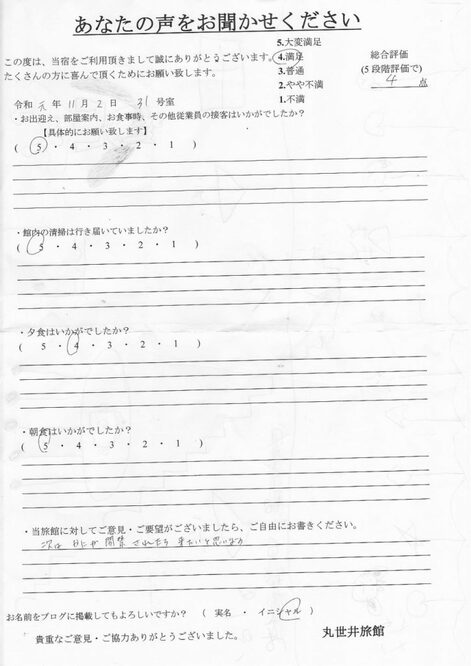 あなたの声をお聞かせください
5.大変満足
この度は、当宿をご利用頂きまして誠にありがとうございます。 4.満足 総合評価
たくさんの方に喜んで頂くためにお願い致します。 3.普通 (5段階評価で)
2.やや不満 4 点
1.不満
令和 元 年 11 月 2 日 31 号室
・お出迎え、部屋案内、お食事時、その他従業員の接客はいかがでしたか?
【具体的にお願い致します】
( 5 ・ 4 ・ 3 ・ 2 ・ 1 )
・館内の清掃は行き届いていましたか?
( 5 ・ 4 ・ 3 ・ 2 ・ 1 )
・夕食はいかがでしたか?
( 5 ・ 4 ・ 3 ・ 2 ・ 1 )
・朝食はいかがでしたか?
( 5 ・ 4 ・ 3 ・ 2 ・ 1 )
・当旅館に対してご意見・ご要望がございましたら、ご自由にお書きください。
次は かにが 解禁 されたら 来たいと思います
お名前をブログに掲載してもよろしいですか? ( 実名 ・ イニシャル )
貴重なご意見・ご協力ありがとうございました。 丸世井旅館